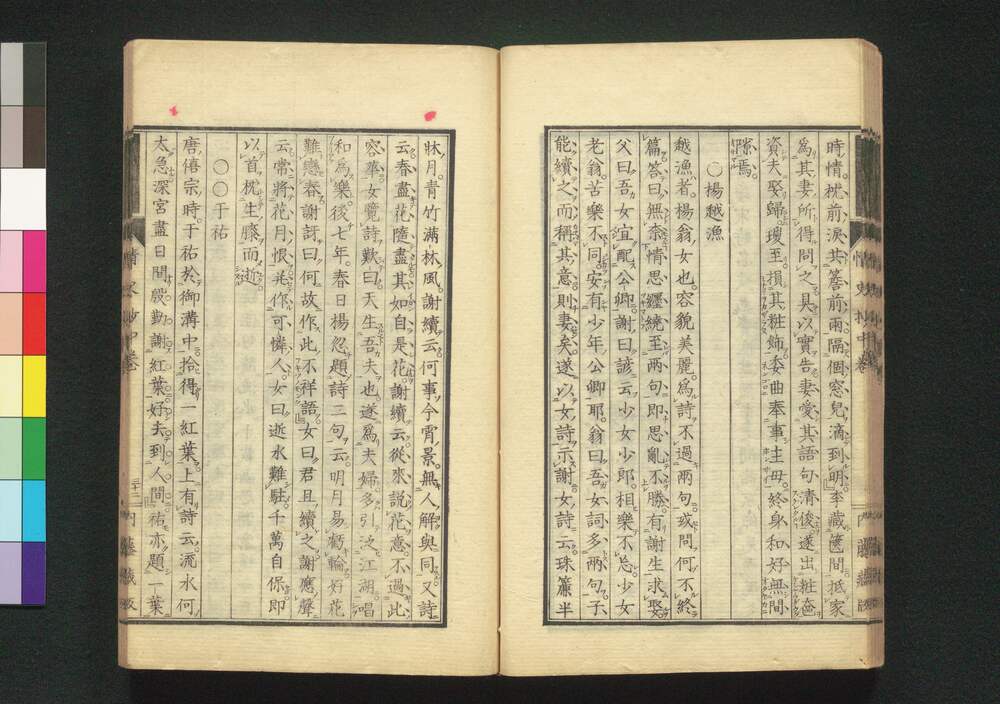 時情。枕前淚共簷前雨隔個窓兒滴到明。李藏篋間抵家
爲其妻所得問之具以實告妻愛其語句清俊遂出粧奩
資夫娶歸。瓊至損其粧飾委曲奉事主母。終身和好無間
隙焉。
〇楊越漁
越漁者楊翁女也。容貌美麗。爲詩不過兩句。或問何不終
篇答曰無柰情思纏繞至兩句即思亂不勝。有謝生求娶
父曰吾女宜配公卿。謝曰諺云少女少郎。相樂不忘。少女
老翁。苦樂不同。安有少年公卿耶。翁曰吾女詞多兩句子
能續之而稱其意則妻矣。遂以女詩示謝女詩云珠簾半
牀月。青竹滿林風。謝續云何事今霄景。無人解與同。又詩
云春盡花隨盡其如自是花。謝續云。從來說花意。不過此
容華女覽詩歎曰天生吾夫也。遂爲夫婦多引泛江湖。唱
和爲樂。後七年。春日楊忽題詩二句云。明月易虧輪好花
難戀春謝訝曰何故作此不祥語。女曰君且續之謝應聲
云常將花月恨并作可憐人。女曰逝水難駐。千萬自保即
以首枕生膝而逝。
〇〇于祐
唐僖宗時。于祐於御溝中。拾得一紅葉。上有詩云。流水何
太急深宮盡日閒。慇勤謝紅葉。好去到人間。祐亦題一葉
情史抄中卷